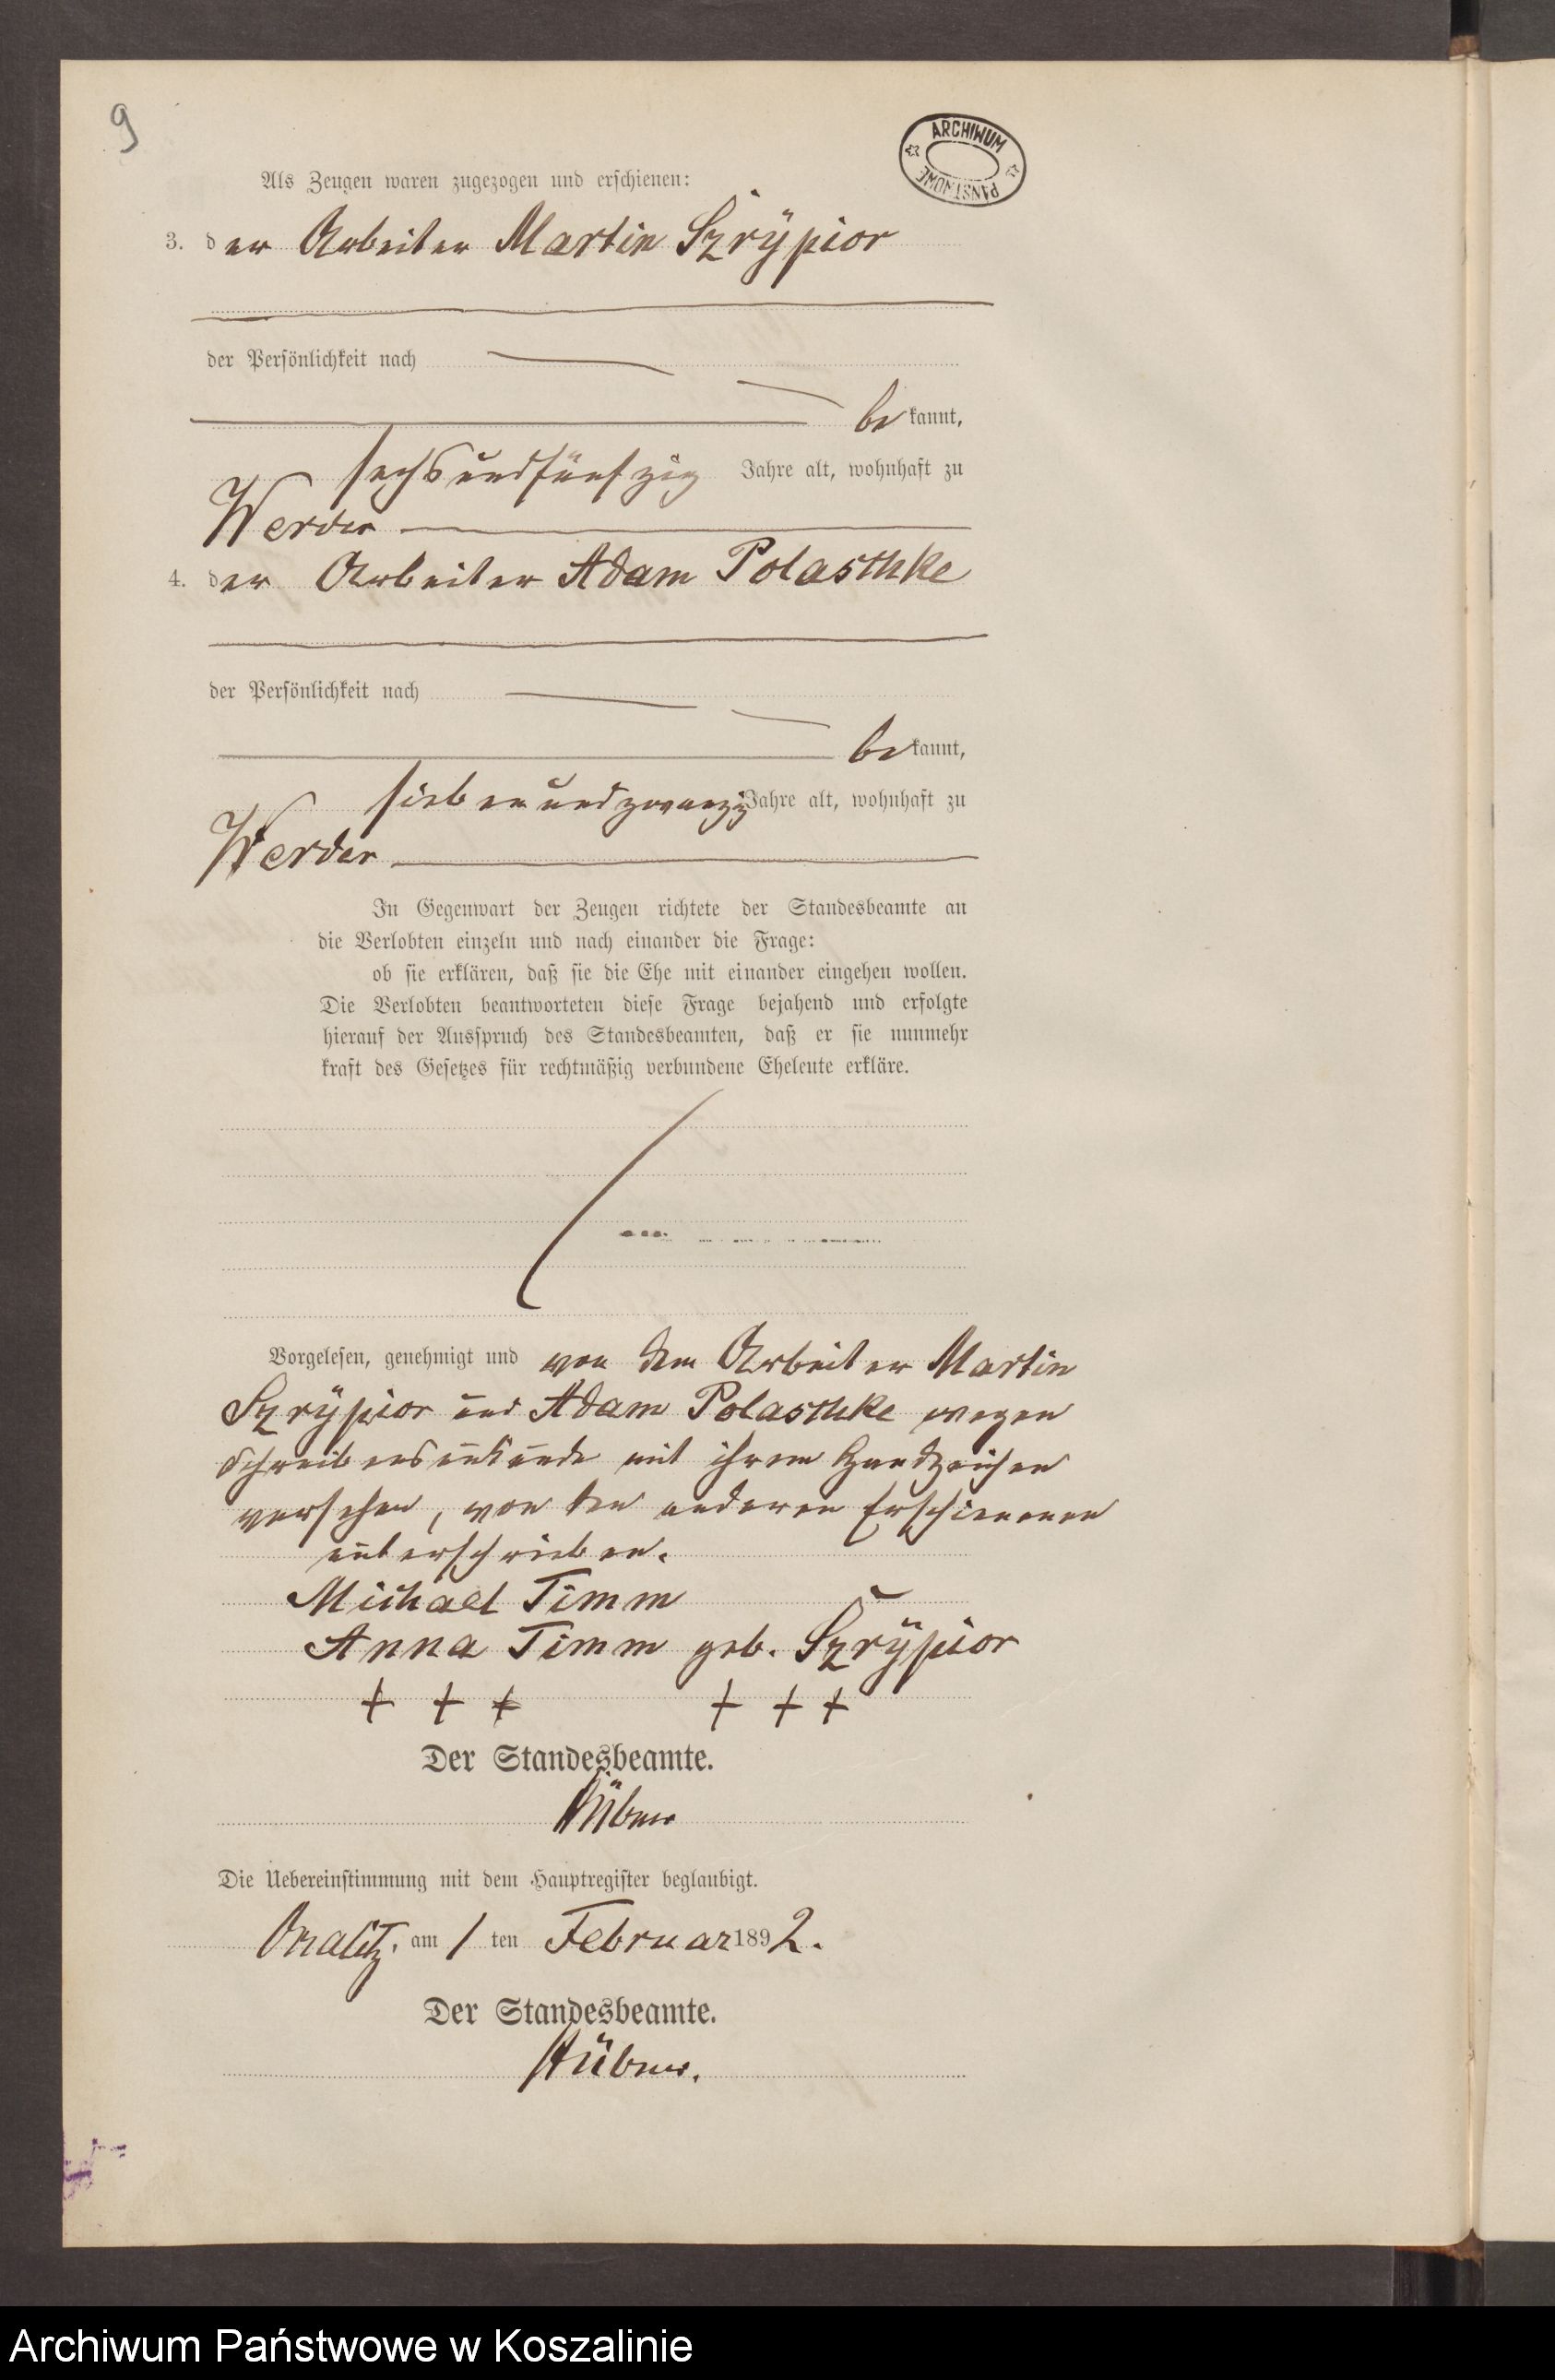 9
ARCHIWUM PAŃSTWOWE
Als Zeugen waren zugezogen und erschienen:
3. der Arbeiter Martin Szrÿpior
der Persönlichkeit nach
bekannt,
sechsundfünfzig Jahre alt, wohnhaft zu
Werder
4. der Arbeiter Adam Polaschke
der Persönlichkeit nach
bekannt,
siebenundzwanzig Jahre alt, wohnhaft zu
Werder
In Gegenwart der Zeugen richtete der Standesbeamte an
die Verlobten einzeln und nach einander die Frage:
ob sie erklären, daß sie die Ehe mit einander eingehen wollen.
Die Verlobten beantworteten diese Frage bejahend und erfolgte
hierauf der Ausspruch des Standesbeamten, daß er sie nunmehr
kraft des Gesetzes für rechtmäßig verbundene Eheleute erkläre.
Vorgelesen, genehmigt und von dem Arbeiter Martin
Szrÿpior und Adam Polaschke wegen
Schreibensunkunde mit ihrem Handzeichen
versehen, von den anderen Erschienenen
unterschrieben.
Michael Timm
Anna Timm geb. Szrÿpior
+ + + + + +
Der Standesbeamte.
Hübner
Die Uebereinstimmung mit dem Hauptregister beglaubigt.
am 1 ten Februar 1892.
Der Standesbeamte.
Hübner.
Archiwum Państwowe w Koszalinie